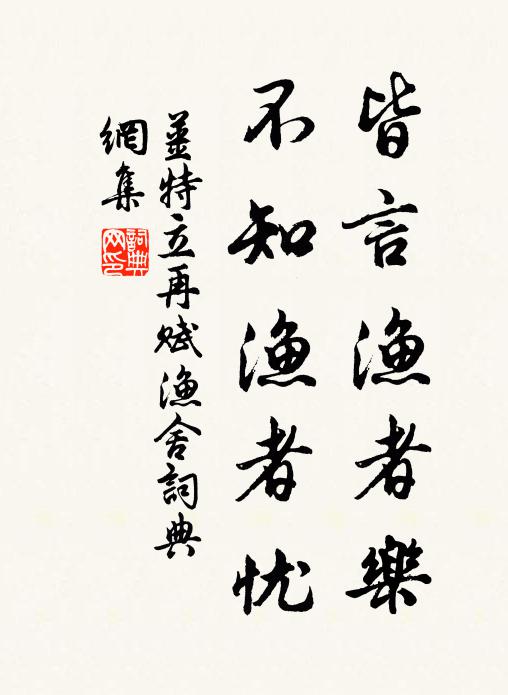 皆言漁者樂
不知漁者忧
姜特立再賦漁舍詞典
網集
詞典
网印